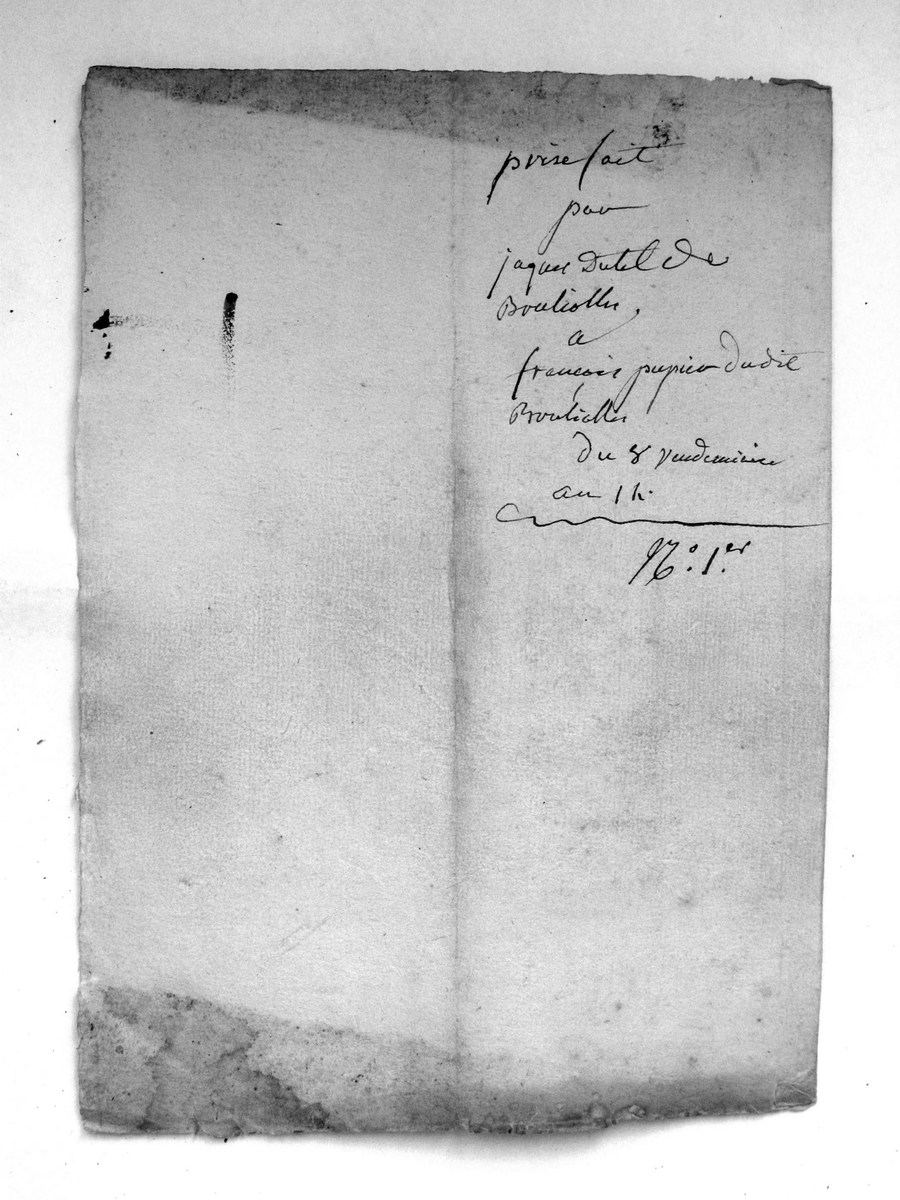 prise fait
par
jaques Dutel de
Bouliolles,
a
françois pupier dudit
Bouliolles
Du 8 Vendemiaire
an 14.
N.º 1.er